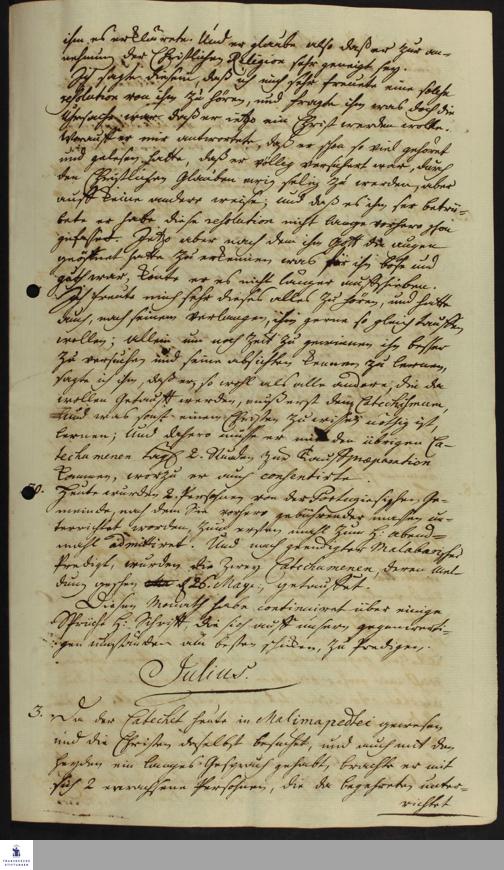 ihm es erklärete. Und er glaube also daß er zur an-
nehmung der Christlichen Religion sehr geneigt sey.
Ich sagte diesem, daß ich mich sehr freuete eine solche
resolution von ihm zu hören, und fragte ihn was doch die
Uhrsache war daß er jetzo ein Christ werden wolte.
Worauf er mir antwortete, daß er schon so viel gehöret
und gelesen hatte, daß er völlig versichert war, durch
den Christlichen Glauben seelig zu werden, aber
auf keine andere weise; und daß es ihn sehr betrü-
bete er habe diese resolution nicht lange vorhero schon
gefasset. Jetzo aber nach dem ihm Gott die augen
geöffnet hatte zu erkennen was für ihn böse und
gut war, konte er es nicht länger aufschieben.
Ich freute mich sehr dieses alles zu hören, und hätte
auch, nach seinem Verlangen, ihn gerne so gleich tauffen
wollen; allein um noch Zeit zu gewinnen ihn besser
zu versuchen und seine absichten kennen zu lernen,
sagte ich ihm, daß er, so wohl als alle andere, die da
wollen getaufft werden, müste erst den Catechismum,
und was sonst einem Christen zu wissen nöthig ist,
lernen; und dahero müste er mit den übrigen Ca-
techumenen tägl. 2. Stunden zur Tauf præparation
kommen, worzu er auch consentirte.
Heute wurden 2. Personen von der Portugiesischen Ge-
meinde, nach dem Sie vorhero gebührender massen un-
terrichtet worden, zum ersten mahl zum H. abend-
mahl admittiret. Und nach geendigter Malabarischer
Predigt, wurden die zwey Catechumenen, deren Mel-
dung geschehen d. 26. Maji, getauffet.
Diesen Monath habe continuiret über einige
Sprüche H. Schrifft die sich auff unsern gegenwerti-
gen umständen am besten schicken, zu Predigen.
Julius.
3. Da der Catechet heute in Malimapedtei gewesen
und die Christen daselbst besucht, und auch mit den
Heyden ein langes Gespräch gehabt, brachte er mit
sich 2 erwachsene Personen, die da begehreten unter-
richtet
FRANCKESCHE
STIFTUNGEN